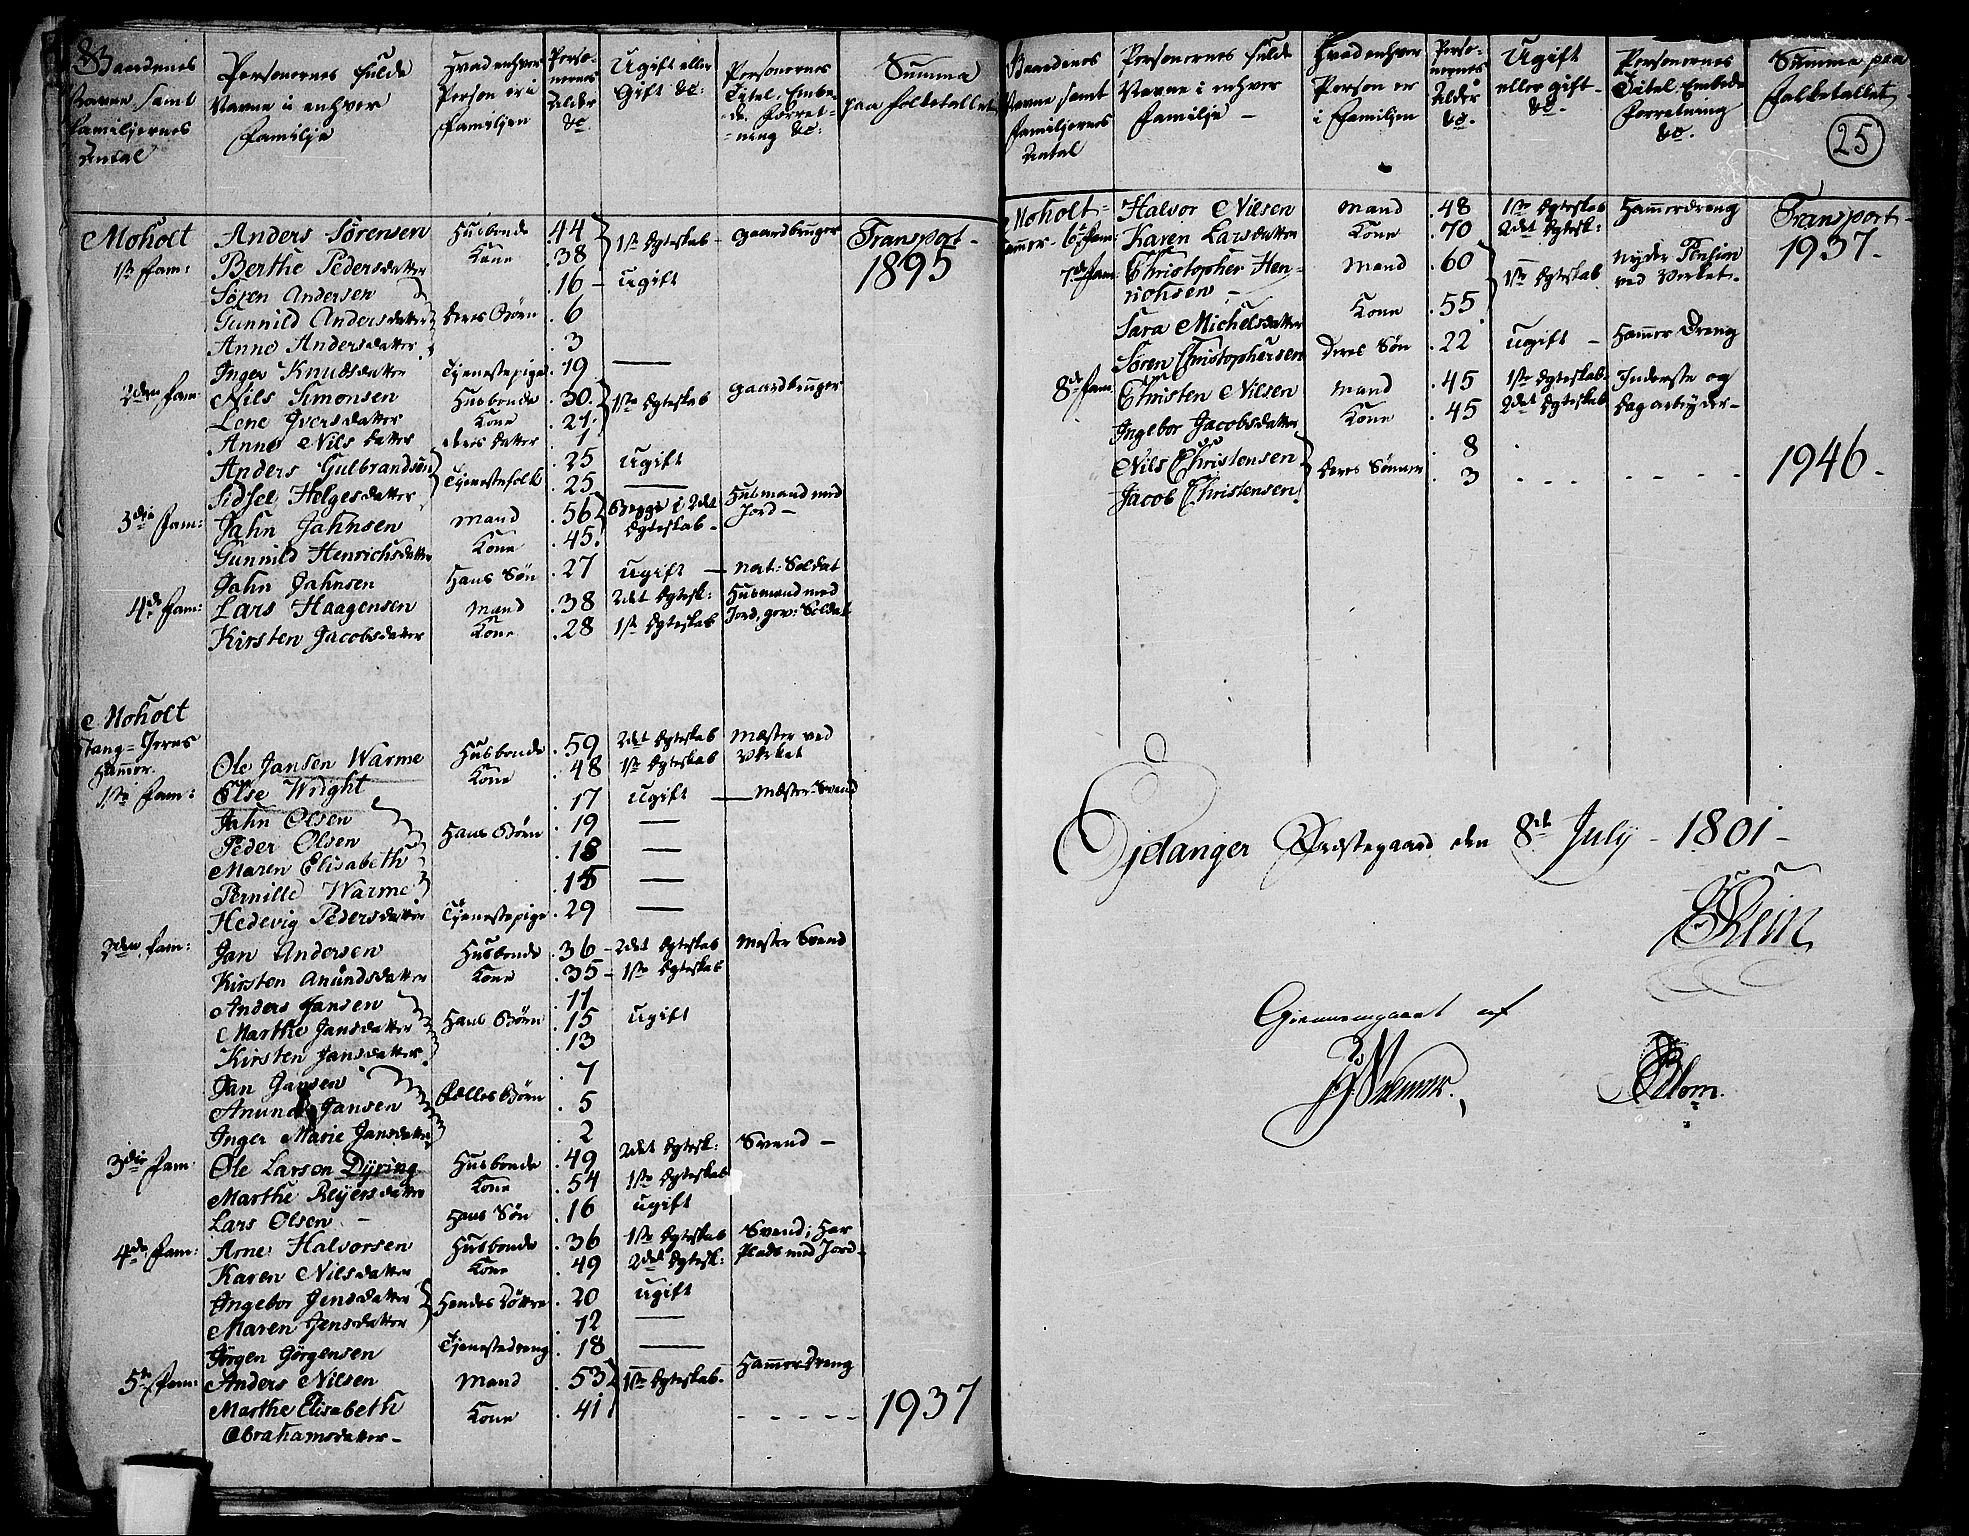 Gaardenes Navne samt Familjernes Antal | Personernes fulde Navne i enhver Familje | Hvad enhver Person er i Familjen | Personernes Alder &c. | Ugift eller Gift &c: | Personernes Titel, Embede, Forretning &c: | Summa paa Folketallet
Moholt | Anders Sørensen | Husbonde | 44 | 1ste Egteskab | Gaardbruger | Transport
1ste Fam: | Berthe Pedersdatter | Kone | 38 | 1895
Søren Andersen | 16 | ugift
Gunnild Andersdatter | deres Børn | 6
Anne Andersdatter | 3
Inger Knudsdatter | Tjenestepige | 19 | —
2den Fam: | Nils Simonsen | Husbonde | 30 | 1ste Egteskab | Gaardbruger
Lene Iversdatter | Kone | 21
Anne Nilsdatter | deres Datter | 1
Anders Gulbrandsøn | Tjenestefolk | 25 | ugift
Sidsel Helgesdatter | 25 | —
3die Fam: | Jahn Jahnsen | Mand | 56 | Begge i 2det Egteskab | Husmand med Jord
Gunnild Henrichsdatter | Kone | 45
Jahn Jahnsen | Hans Søn | 27 | ugift | nat: Soldat
4de Fam: | Lars Haagensen | Mand | 38 | 2det Egtesk: | Husmand med
Kirsten Jacobsdatter | Kone | 28 | 1ste Egteskab | Jord, gev: Soldat
Moholt
Stang-Jerns
Hammer | Ole Jansen Warme | Husbonde | 59 | 2det Egteskab | Mæster ved
1ste Fam: | Else Wright | Kone | 48 | 1ste Egteskab | Værket
Jahn Olsen | 17 | ugift | Mæster-Svend
Peder Olsen | Hans Børn | 19 | —
Maren Elisabeth | 18 | —
Pernille Warme | 15 | —
Hedevig Pedersdatter | Tjenestepige | 29 | —
2den Fam: | Jan Andersen | Husbonde | 36 | 2det Egteskab | Mester Svend
Kirsten Anundsdatter | Kone | 35 | 1ste Egteskab
Anders Jansen | 11
Marthe Jansdatter | Hans Børn | 15 | ugift
Kirsten Jansdatter | 13
Jan Jansen | 7
Anund Jansen | Fælles Børn | 5
Inger Marie Jansdatter | 2
3die Fam: | Ole Larsen Dyring | Husbonde | 49 | 2det Egtesk: | Svend
Marthe Reyersdatter | Kone | 54 | 1ste Egteskab
Lars Olsen | Hans Søn | 16 | ugift
4de Fam: | Arne Halvorsen | Husbonde | 36 | 1ste Egteskab | Svend; Har
Karen Nilsdatter | Kone | 49 | 2det Egtesk: | Plads med Jord
Ingebor Jensdatter | Hendes Døttre | 20 | ugift
Maren Jensdatter | 12 | —
Jørgen Jørgensen | Tjenestedreng | 18 | —
5te Fam: | Anders Nilsen | Mand | 53 | 1ste Egteskab | Hammerdreng
Marthe Elisabeth | Kone | 41 | 1937
Abrahamsdatter
Gaardenes Navne samt Familjernes Antal | Personernes fulde Navne i enhver Familje | Hvad enhver Person er i Familjen | Personernes Alder &c. | Ugift eller gift &c. | Personernes Titel, Embede Forretning &c. | Summa paa Folketallet
25
Moholt- | Halvor Nilsen | Mand | 48 | 1ste Egteskab | Hammerdreng | Transport
Hammer 6te Fam: | Karen Larsdatter | Kone | 70 | 2det Egtesk: | 1937
7de Fam: | Christopher Hen- | Mand | 60 | 1ste Egteskab | nyder Pension
richsen | ved Verket
Sara Michelsdatter | Kone | 55
Søren Christophersen | deres Søn | 22 | ugift | Hammer Dreng
8de Fam: | Christen Nilsen | Mand | 45 | 1ste Egteskab | Inderste og
Ingebor Jacobsdatter | Kone | 45 | 2det Egteskab | Dagarbeyder
Nils Christensen | deres Sønner | 8
Jacob Christensen | 3 | 1946
Ejdanger Præstegaard den 8de July 1801
Rein
Giennemgaaet af
Blom.